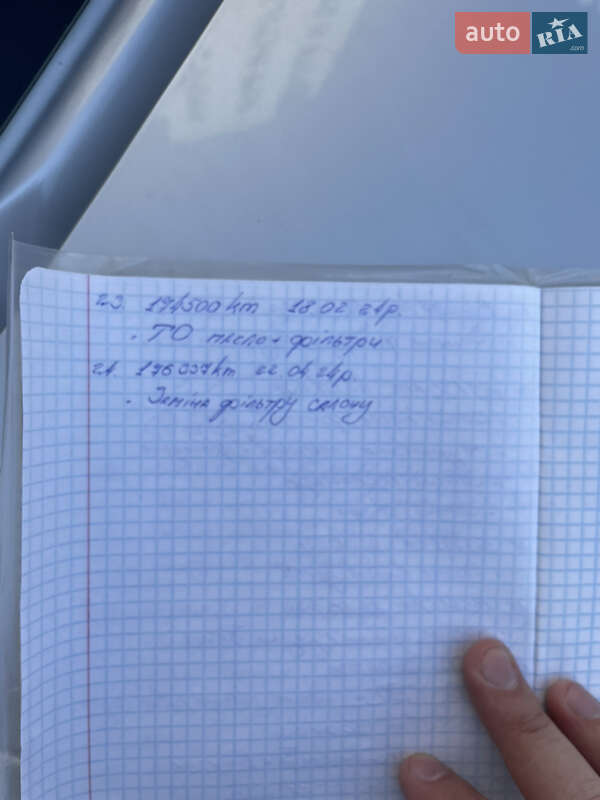 auto RIA .com
23. 174500 km 18 02 24р.
. ТО масло + фільтри
24. 176 037 km 22 04 24р.
. Заміна фільтру салону